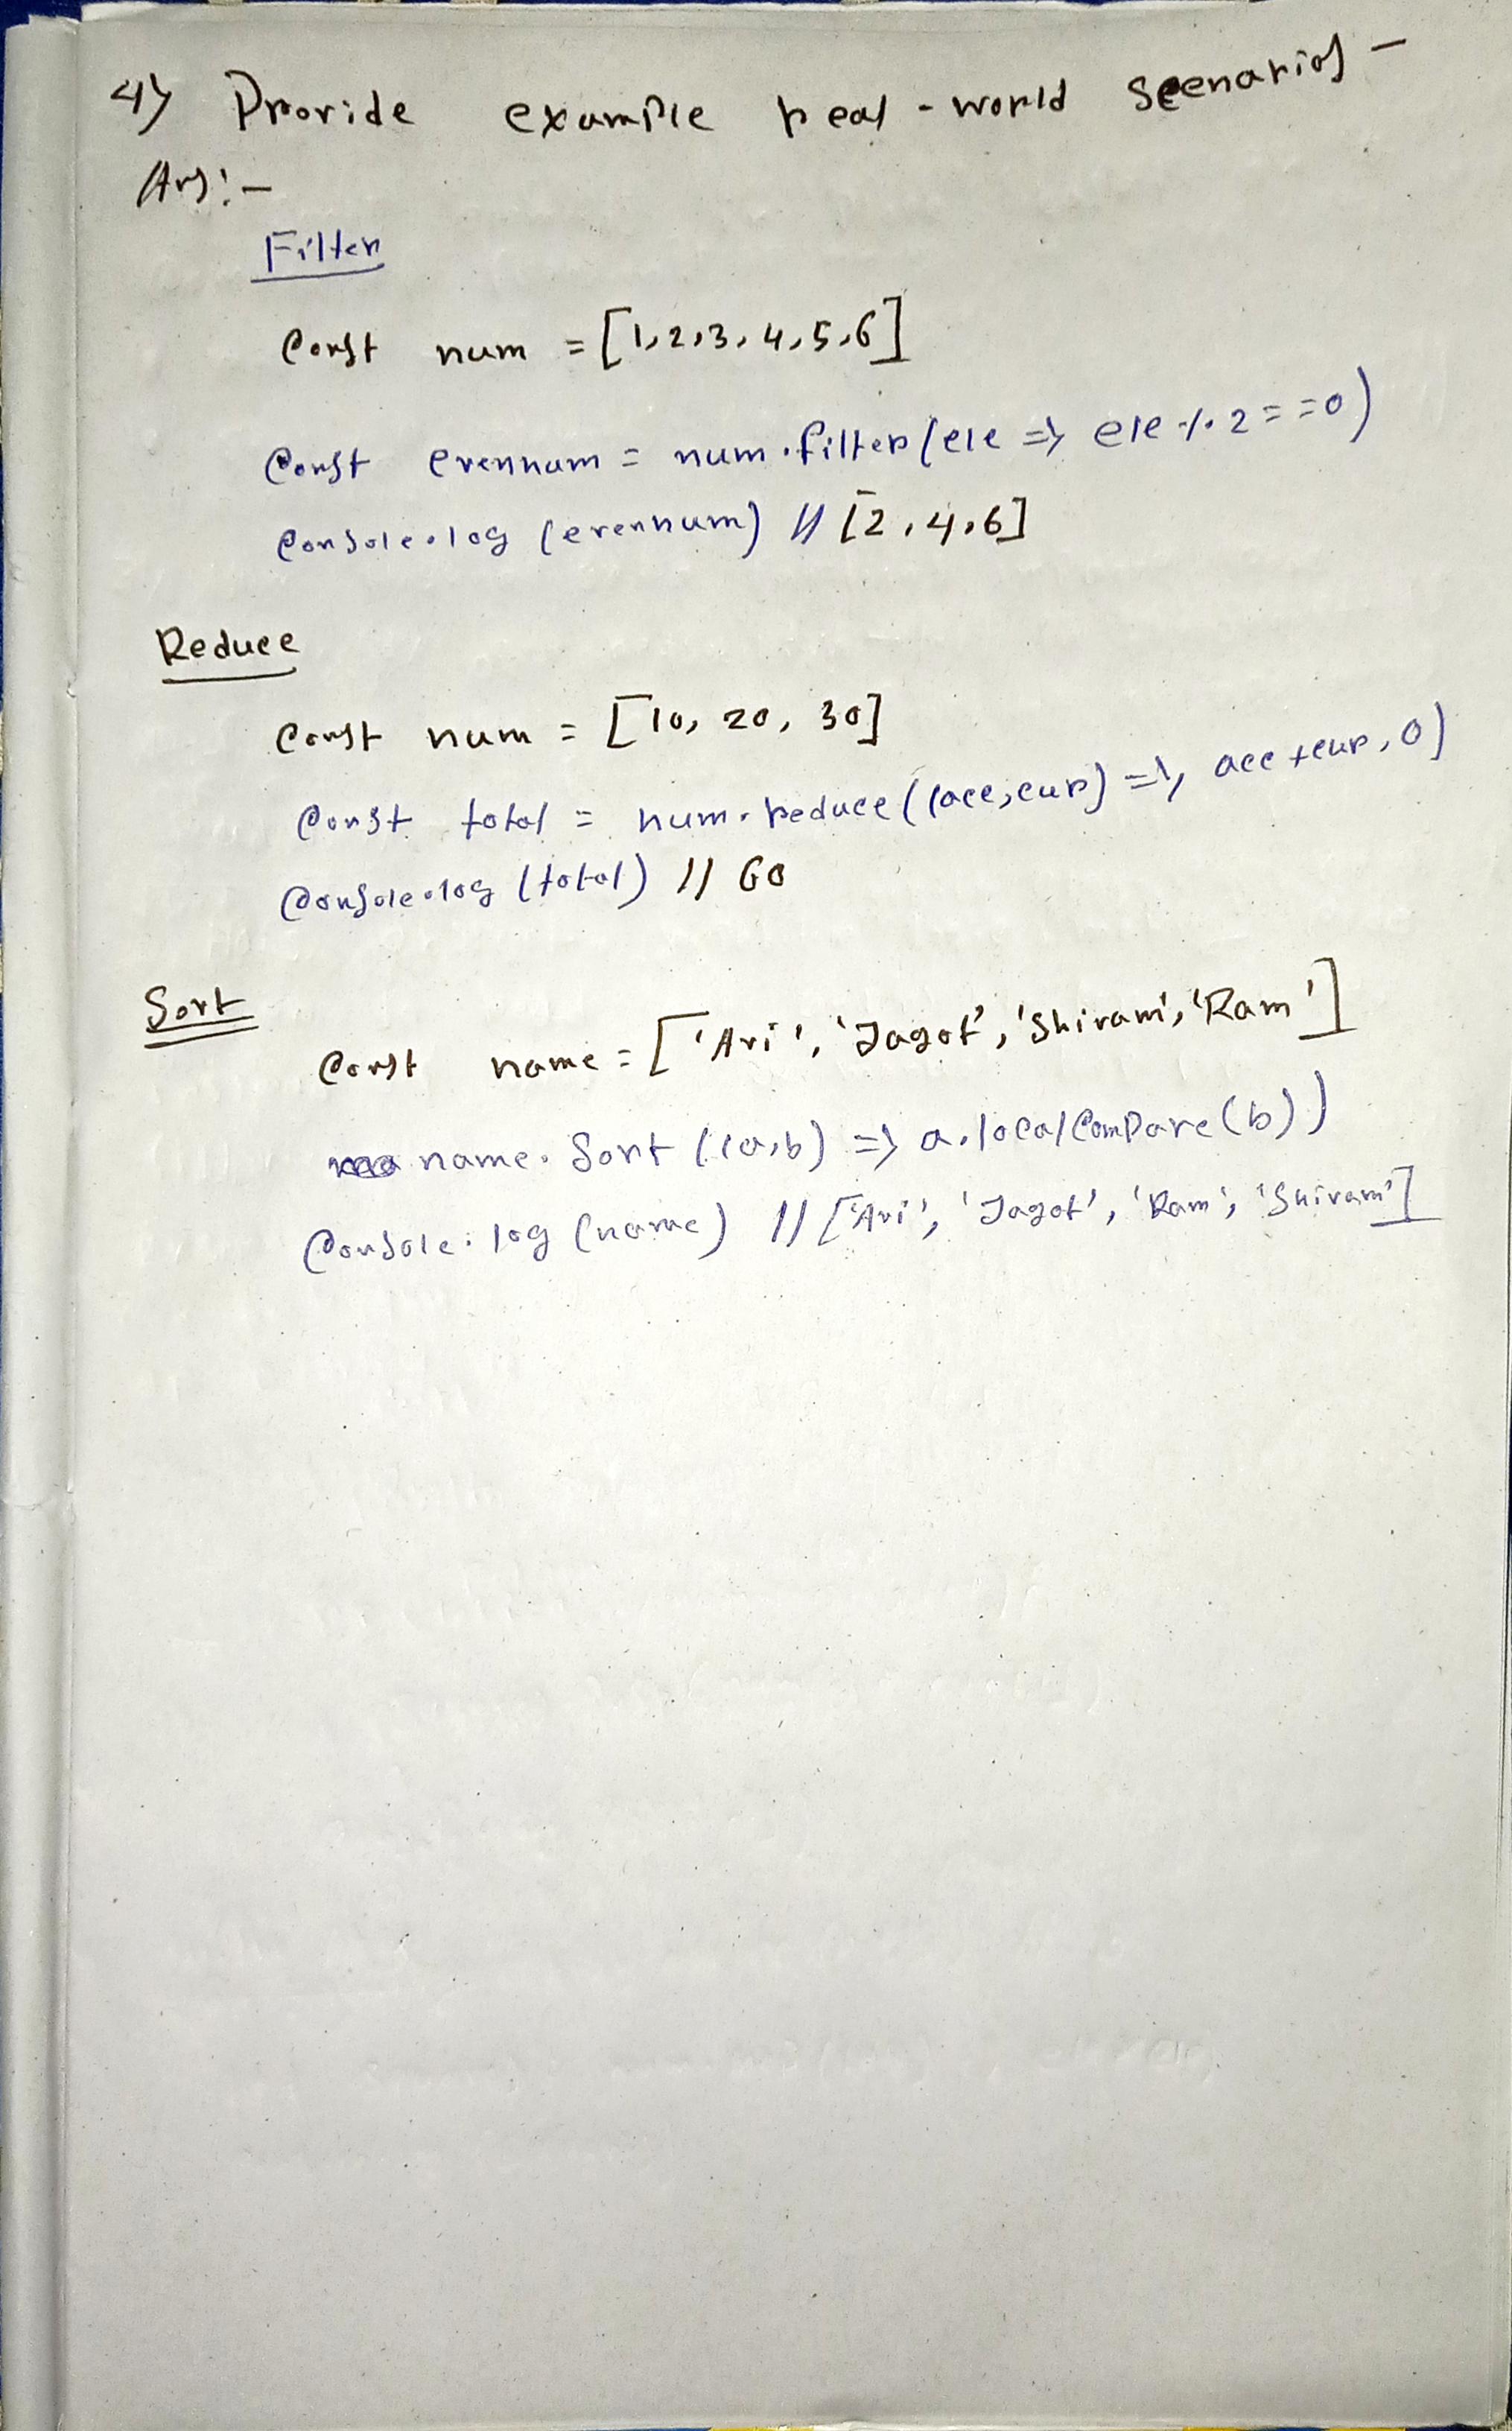 4) Provide example real-world scenarios -
Ans:-
Filter
Const num = [1,2,3,4,5,6]
Const evennum = num.filter(ele => ele % 2 == 0)
Console.log (evennum) // [2,4,6]
Reduce
Const num = [10, 20, 30]
Const total = num.reduce((acc,cur) => acc +cur, 0)
Console.log (total) // 60
Sort
Const name = ['Avi', 'Jagat', 'Shivam', 'Ram']
name.Sort ((a,b) => a.localCompare(b))
Console.log (name) // ['Avi', 'Jagat', 'Ram', 'Shivam']